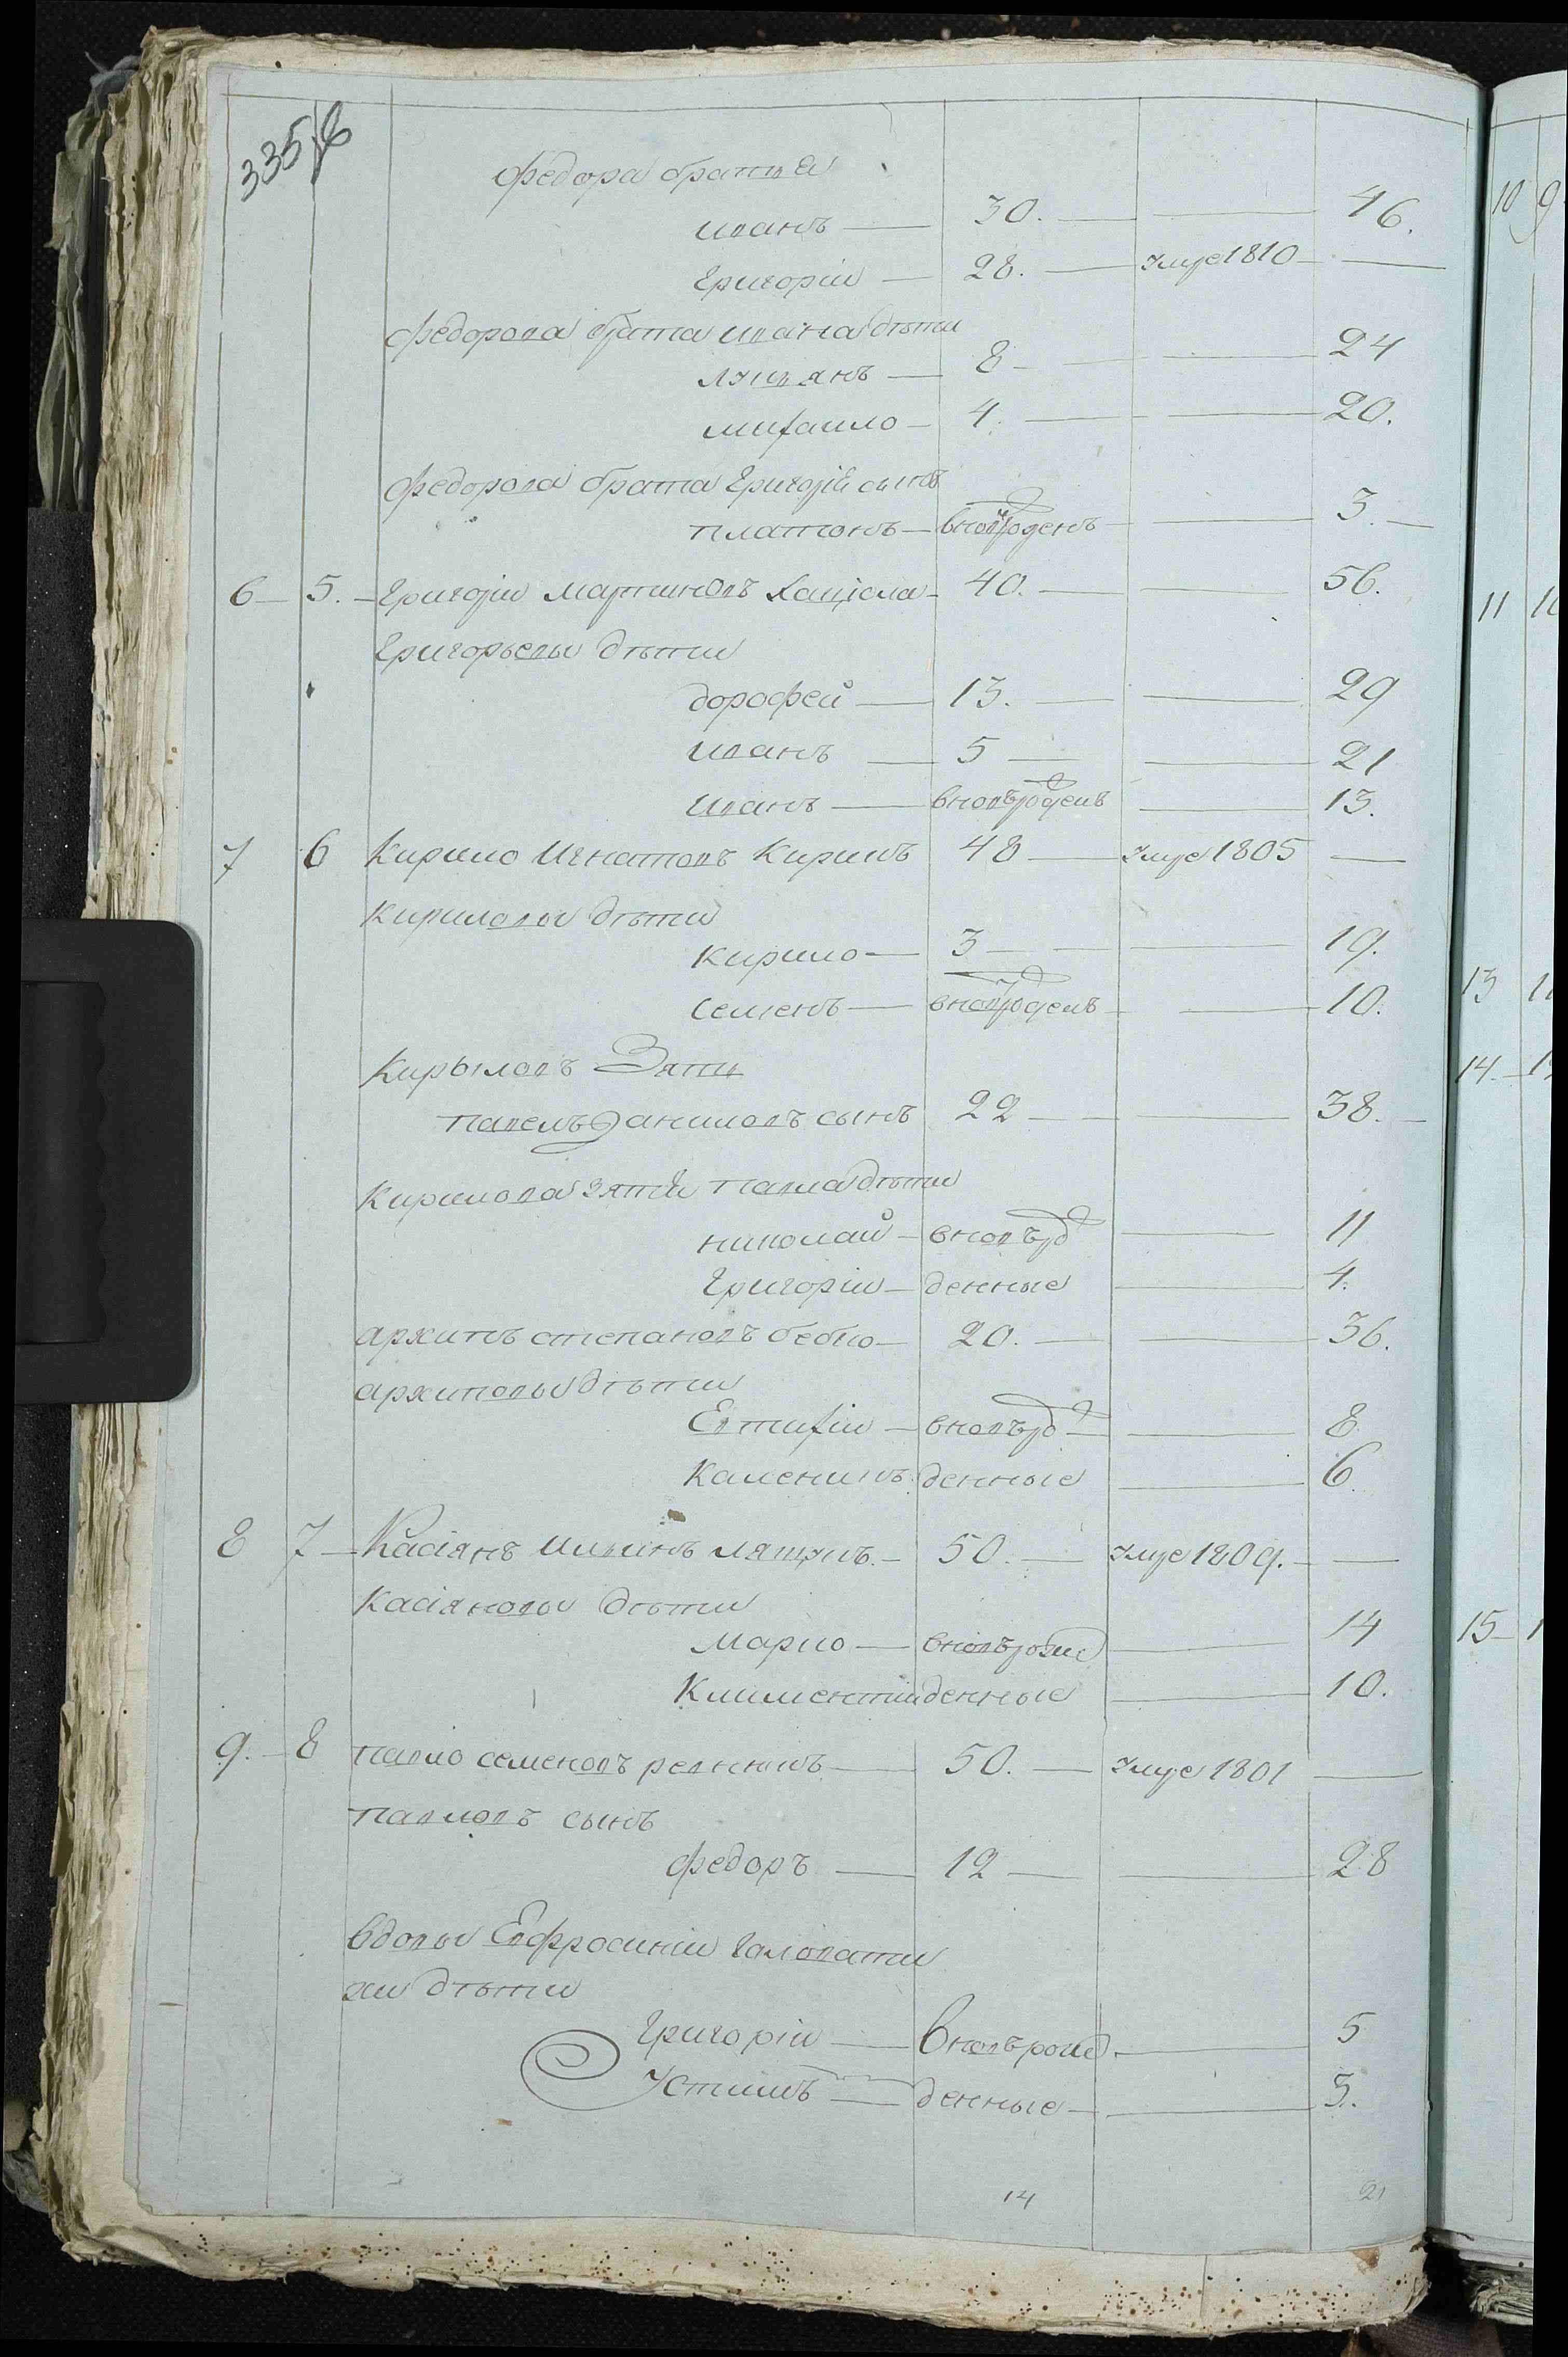 335 в
Федора братья
иванъ — 30. — — 46.
Григорій — 28. — Умре 1810 —
Федорова брата ивана дѣти
лукьянъ — 8 — — 24
михаило — 4. — — 20.
Федорова брата Григорія сынъ
платонъ — вновьрожденъ — 3. —
6 — 5. — Григорій мартиновъ — 40. — — 56.
Григорьевы дѣти
дорофей — 13. — — 29
иванъ — 5 — — 21
иванъ — вновьрожденъ — 13.
7 6 Кирило Игнатовъ Кирикъ 48 — Умре 1805 —
Кириловы дѣти
Кирило — 3 — — 19.
Семенъ — вновьрожденъ — 10.
Кирыловъ Зять
павелъ Даниловъ сынъ 22 — — 38. —
Кирилова зятя павла дѣти
николай — вновьро — 11
Григорій — жденные — 4.
архипъ степановъ бебко — 20. — — 36.
архиповы дѣти
Евтихій — вновьро — 8
Каленикъ жденные — 6.
8 7 — Касіянъ Ильинъ ляшукъ — 50. — Умре 1809. —
Касіяновы дѣти
Марко — вновьрож — 14
Климентій денные — 10.
9. — 8 павло семеновъ — 50. — Умре 1801 —
павловъ сынъ
федоръ — 12 — — 28
вдовы Евфросиніи Головати
хи дѣти
Григорій — вновьрож — 5
Устимъ — денные — 5.
14 21
10 9
11 10
13 11
14 —
15 —